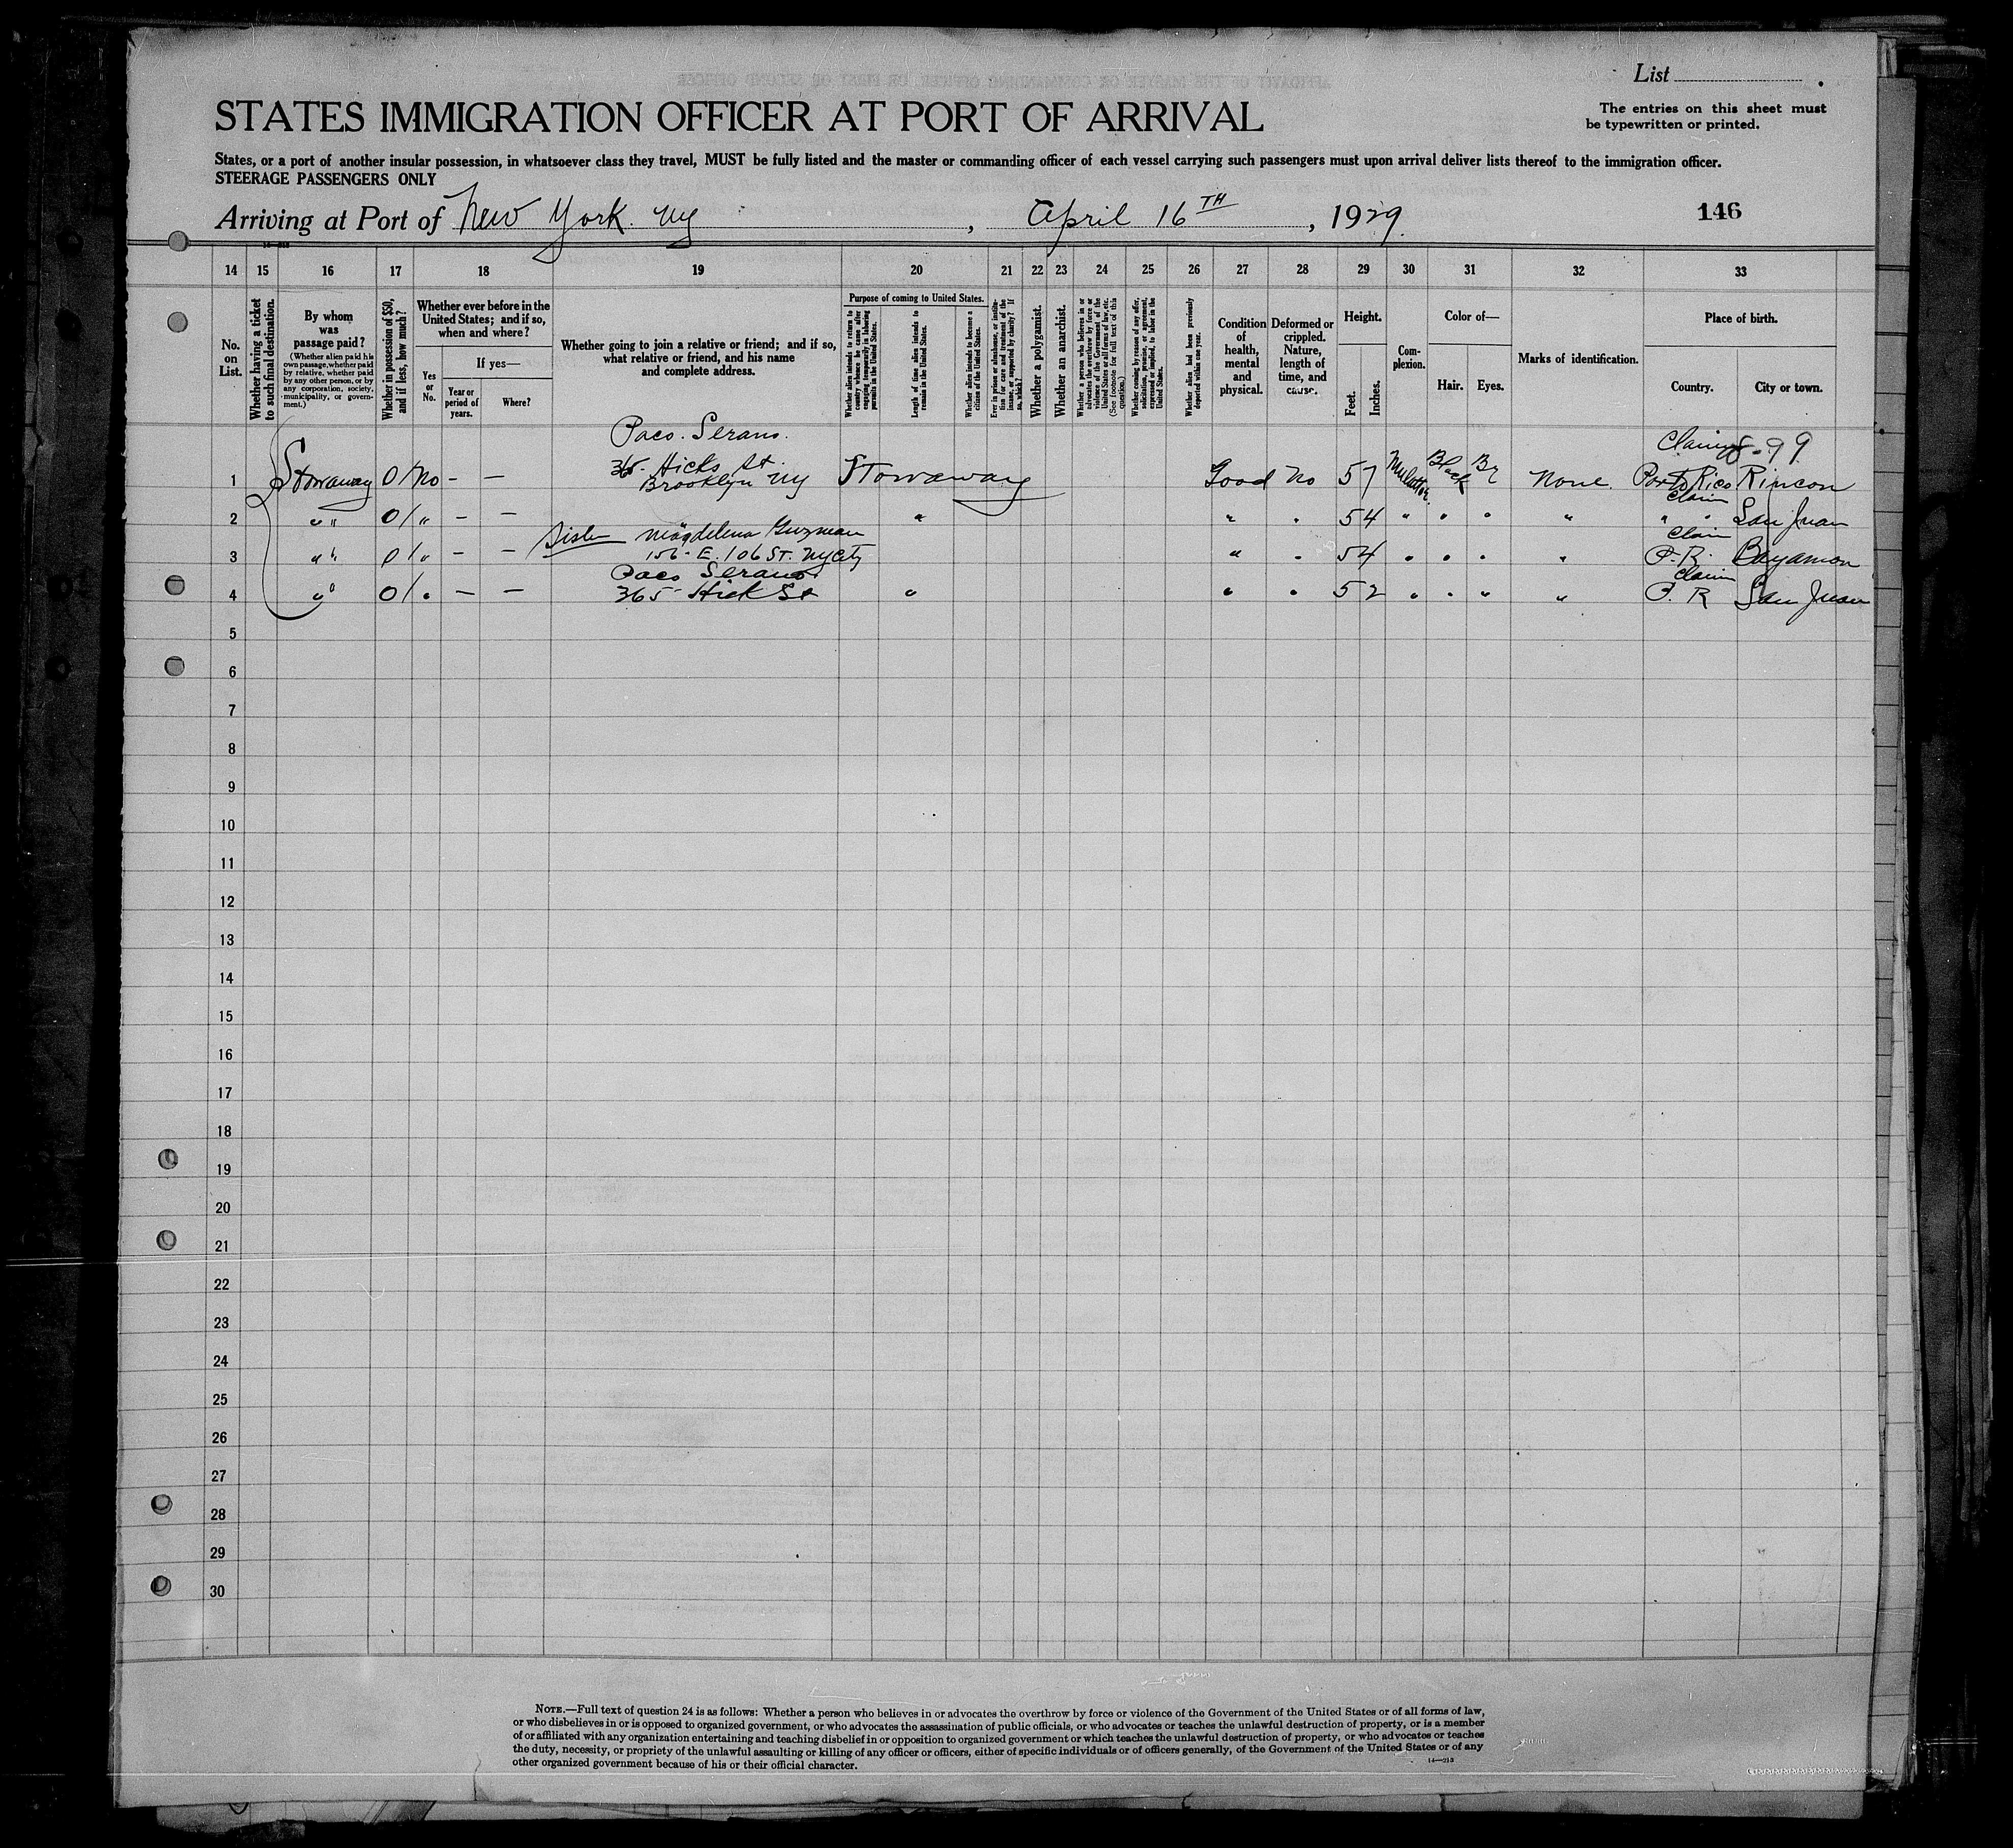 List
STATES IMMIGRATION OFFICER AT PORT OF ARRIVAL
The entries on this sheet must
be typewritten or printed.
States, or a port of another insular possession, in whatsoever class they travel, MUST be fully listed and the master or commanding officer of each vessel carrying such passengers must upon arrival deliver lists thereof to the immigration officer.
STEERAGE PASSENGERS ONLY
Arriving at Port of New York. Ny , April 16TH , 1929.
146
14 15 16 17 18 19 20 21 22 23 24 25 26 27 28 29 30 31 32 33
No. on List.
Whether having a ticket to such final destination.
By whom was passage paid?
(Whether alien paid his own passage, whether paid by relative, whether paid by any other person, or by any corporation, society, municipality, or government.)
Whether in possession of $50, and if less, how much?
Whether ever before in the United States; and if so, when and where?
If yes—
Yes or No.
Year or period of years.
Where?
Whether going to join a relative or friend; and if so, what relative or friend, and his name and complete address.
Purpose of coming to United States.
Whether alien intends to return to country whence he came after engaging temporarily in laboring pursuits in the United States.
Length of time alien intends to remain in the United States.
Whether alien intends to become a citizen of the United States.
Ever in prison or almshouse, or institution for care and treatment of the insane, or supported by charity? If so, which?
Whether a polygamist.
Whether an anarchist.
Whether a person who believes in or advocates the overthrow by force or violence of the Government of the United States or all forms of law, etc. (See footnote for full text of this question.)
Whether coming by reason of any offer, solicitation, promise, or agreement, expressed or implied, to labor in the United States.
Whether alien had been previously deported within one year.
Condition of health, mental and physical.
Deformed or crippled. Nature, length of time, and cause.
Height.
Feet. Inches.
Complexion.
Color of—
Hair. Eyes.
Marks of identification.
Place of birth.
Country. City or town.
Paco. Serano.
Claim 8-99
1 Stowaway 0 / No - — 365 Hicks St. Brooklyn Ny Stowaway Good No 57 Mulatto Black Br None. Porto Rico Rincon
Claim
2 " " 0 / " — — " " " 54 " " " " " " San Juan
Sister Magdelena Guzman
Claim
3 " " 0 / " — — 156- E. 106 ST. NY City " " 54 " " " " P.R. Bayamon
Paco Serano
Claim
4 " " 0 / " — — 365 Hick St " " " 52 " " " " P. R San Juan
5
6
7
8
9
10
11
12
13
14
15
16
17
18
19
20
21
22
23
24
25
26
27
28
29
30
NOTE.—Full text of question 24 is as follows: Whether a person who believes in or advocates the overthrow by force or violence of the Government of the United States or of all forms of law,
or who disbelieves in or is opposed to organized government, or who advocates the assassination of public officials, or who advocates or teaches the unlawful destruction of property, or is a member
of or affiliated with any organization entertaining and teaching disbelief in or opposition to organized government or which teaches the unlawful destruction of property, or who advocates or teaches
the duty, necessity, or propriety of the unlawful assaulting or killing of any officer or officers, either of specific individuals or of officers generally, of the Government of the United States or of any
other organized government because of his or their official character.
14—213